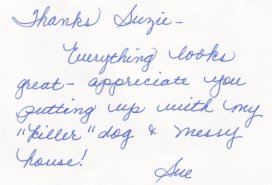 Thanks Suzie-
Everything looks
great- appreciate you
putting up with my
"killer" dog & messy
house!
Sue